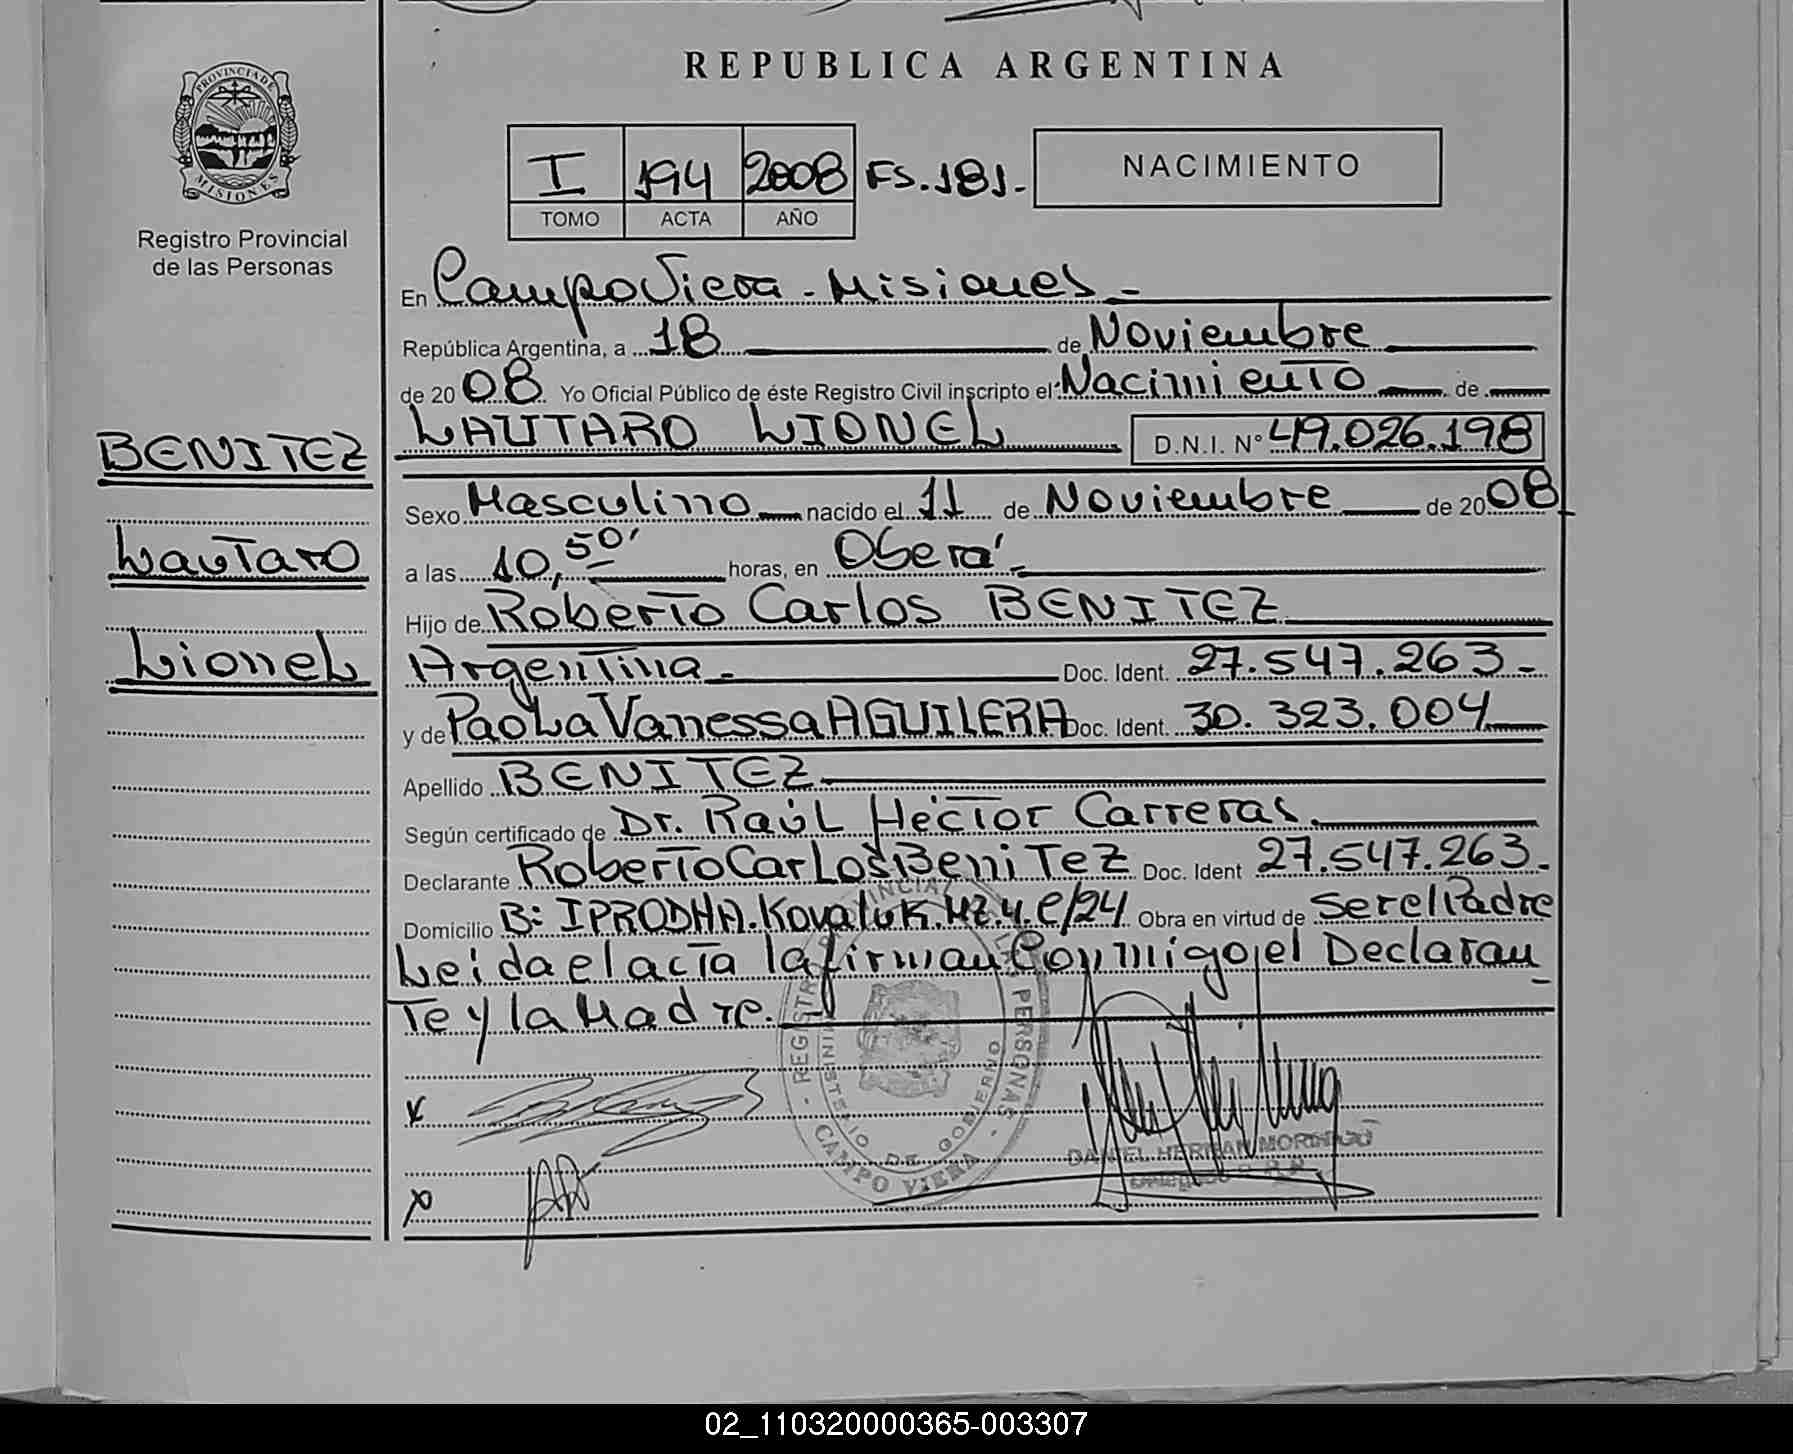 REPUBLICA ARGENTINA
PROVINCIA DE MISIONES
Registro Provincial
de las Personas
I 194 2008 FS. 181.-
TOMO ACTA AÑO
NACIMIENTO
BENITEZ
Lautaro
Lionel
En Campo Viera - Misiones -
República Argentina, a 18 de Noviembre
de 2008 Yo Oficial Público de éste Registro Civil inscripto el: Nacimiento de
LAUTARO LIONEL D.N.I. N° 49.026.198
Sexo Masculino nacido el 11 de Noviembre de 2008
a las 10,50' horas, en Oberá.
Hijo de Roberto Carlos BENITEZ
Argentina - Doc. Ident. 27.547.263-
y de Paola Vanessa AGUILERA Doc. Ident. 30.323.004
Apellido BENITEZ
Según certificado de Dr. Raúl Héctor Carreras.
Declarante Roberto Carlos Benitez Doc. Ident 27.547.263-
Domicilio B: IPRODHA. Kovaluk. Mz. 4. C/24 Obra en virtud de ser el Padre
Leida el acta la firman Conmigo el Declaran
te y la Madre.
REGISTRO PROVINCIAL DE LAS PERSONAS
MINISTERIO DE GOBIERNO
CAMPO VIERA
DANIEL HERNAN
Delegado
02_110320000365-003307